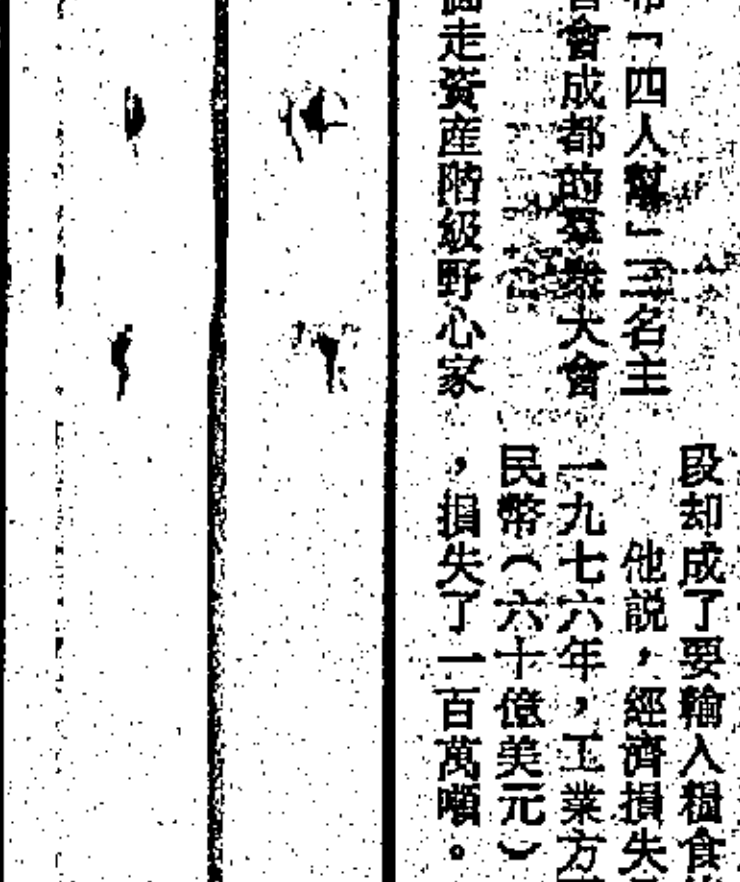 「四人幫」三名主
會成都的羣衆大會
走資產階級野心家
段却成了要輸入糧食
他説，經濟損失
一九七六年，工業方
民幣（六十億美元）
，損失了一百萬噸。